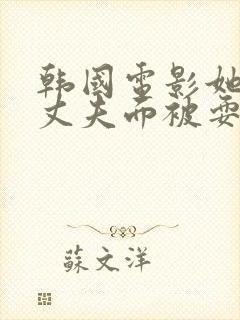 韩國电影她
丈夫而被耍
蘇文洋